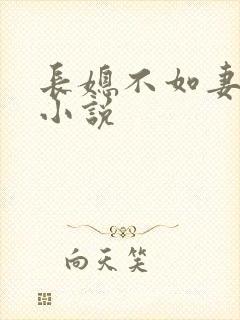 長媳不如妻
小說
向天笑